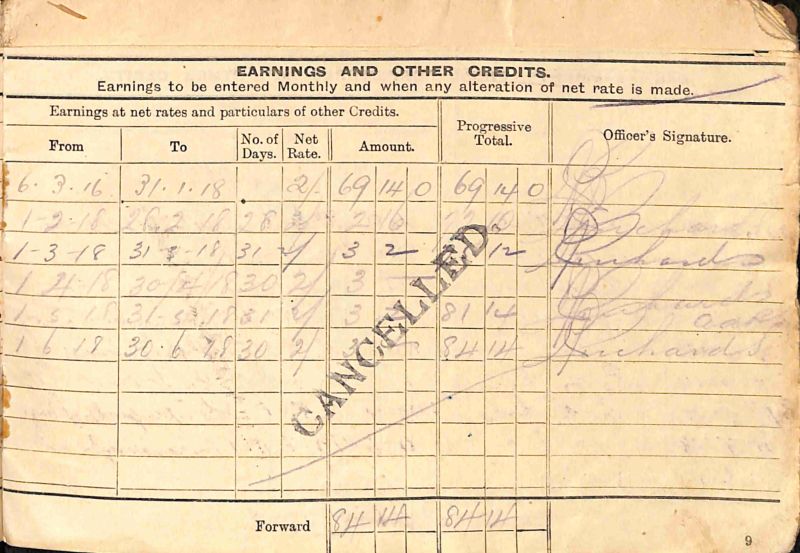 EARNINGS AND OTHER CREDITS.
Earnings to be entered Monthly and when any alteration of net rate is made.
Earnings at net rates and particulars of other Credits.
Progressive Total.
Officer's Signature.
From To No. of Days. Net Rate. Amount.
6.3.16 31.1.18 2/ 69 14 0 69 14 0
1-2-18 28.2.18 28 2/ 2 16 Richards
1-3-18 31 3 18 31 2/ 3 2 12 Richards
1 4 18 30/4/18 30 2/ 3
1.5.18 31.5.18 31 2/ 3 81 14 Richards
1 6 18 30.6.18 30 2/ 84 14 Richards
CANCELLED.
Forward 84 14 84 14
9